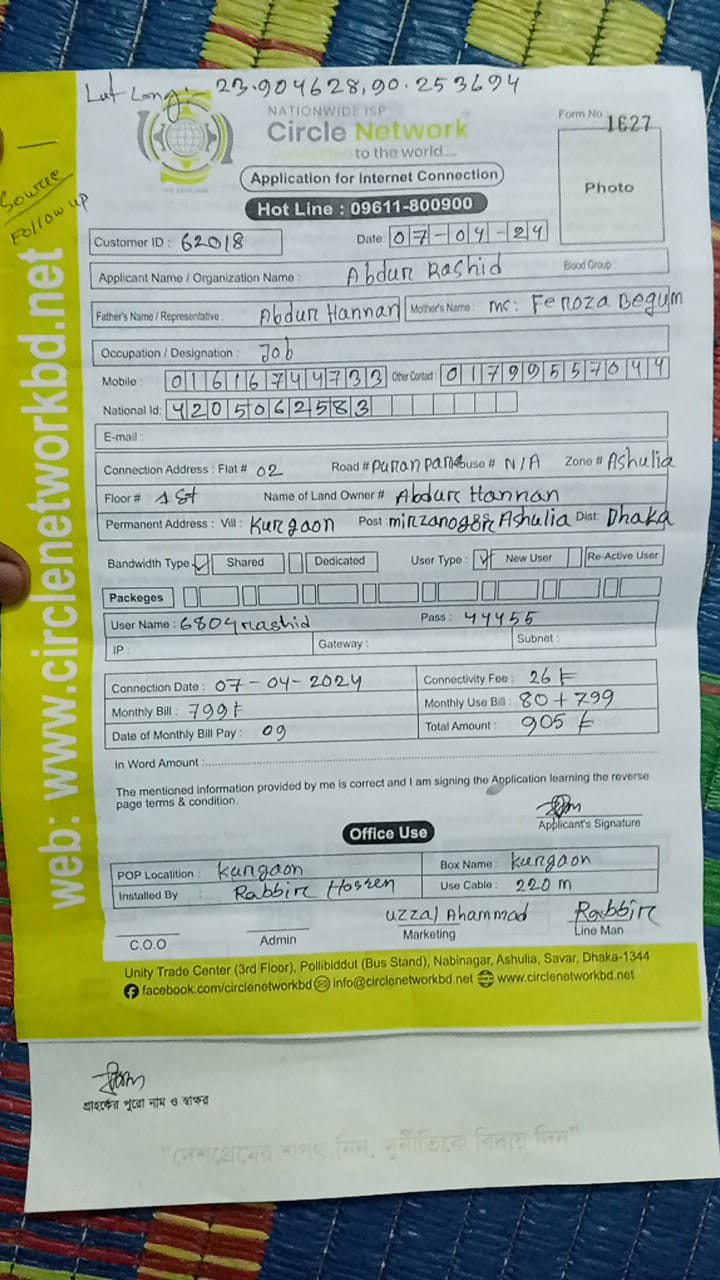 Lat Long: 23.904628,90.253694
NATIONWIDE ISP
Circle Network
Connected to the world....
Form No 1627
Photo
Application for Internet Connection
Hot Line : 09611-800900
Source
Follow up
web: www.circlenetworkbd.net
Customer ID : 62018
Date 07-04-24
Applicant Name / Organization Name : Abdur Rashid Blood Group :
Father's Name / Representative : Abdur Hannan Mother's Name : Ms: Feroza Begum
Occupation / Designation : Job
Mobile : 01616744733 Other Contact : 01799557044
National Id: 4205062583
E-mail :
Connection Address : Flat # 02 Road # Puranpara House # N/A Zone # Ashulia
Floor # 1st Name of Land Owner # Abdur Hannan
Permanent Address : Vill: Kurgaon Post: Ashulia Dist: Dhaka
Bandwidth Type Shared Dedicated User Type : New User Re-Active User
Packeges
User Name : 6809rashid Pass : 44455
IP : Gateway : Subnet :
Connection Date : 07-04-2024 Connectivity Fee : 26 ৳
Monthly Bill : 799৳ Monthly Use Bill : 80+799
Date of Monthly Bill Pay : 09 Total Amount : 905 ৳
In Word Amount :
The mentioned information provided by me is correct and I am signing the Application learning the reverse
page terms & condition.
Applicant's Signature
Office Use
POP Locatition : Kurgaon Box Name : Kurgaon
Installed By : Rabbir Hossen Use Cable : 220 m
Uzzal Rabbir
C.O.O Admin Marketing Line Man
Unity Trade Center (3rd Floor), Pollibiddut (Bus Stand), Nabinagar, Ashulia, Savar, Dhaka-1344
facebook.com/circlenetworkbd info@circlenetworkbd.net www.circlenetworkbd.net
গ্রাহকের পুরো নাম ও স্বাক্ষর
"দেশপ্রেমের শপথ নিন, দুর্নীতিকে বিদায় দিন"